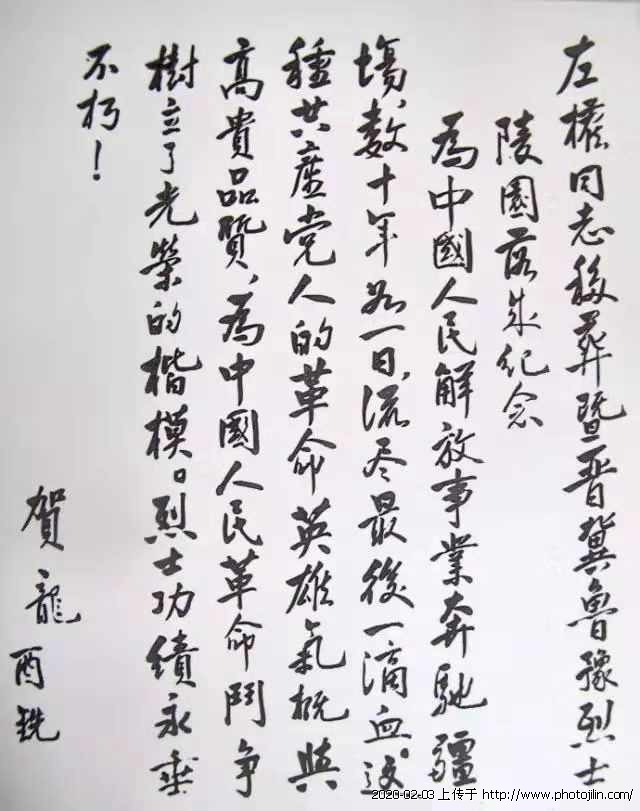 左權同志移葬暨晋冀魯豫烈士
陵園落成纪念
為中國人民解放事業奔馳疆
場、数十年如一日，流尽最後一滴血。这
種共產党人的革命英雄氣概與
高貴品質、為中國人民革命鬥争
樹立了光榮的楷模。烈士功績永垂
不朽！
賀龍 敬銑
2020-02-03 上传于 http://www.photojilin.com/